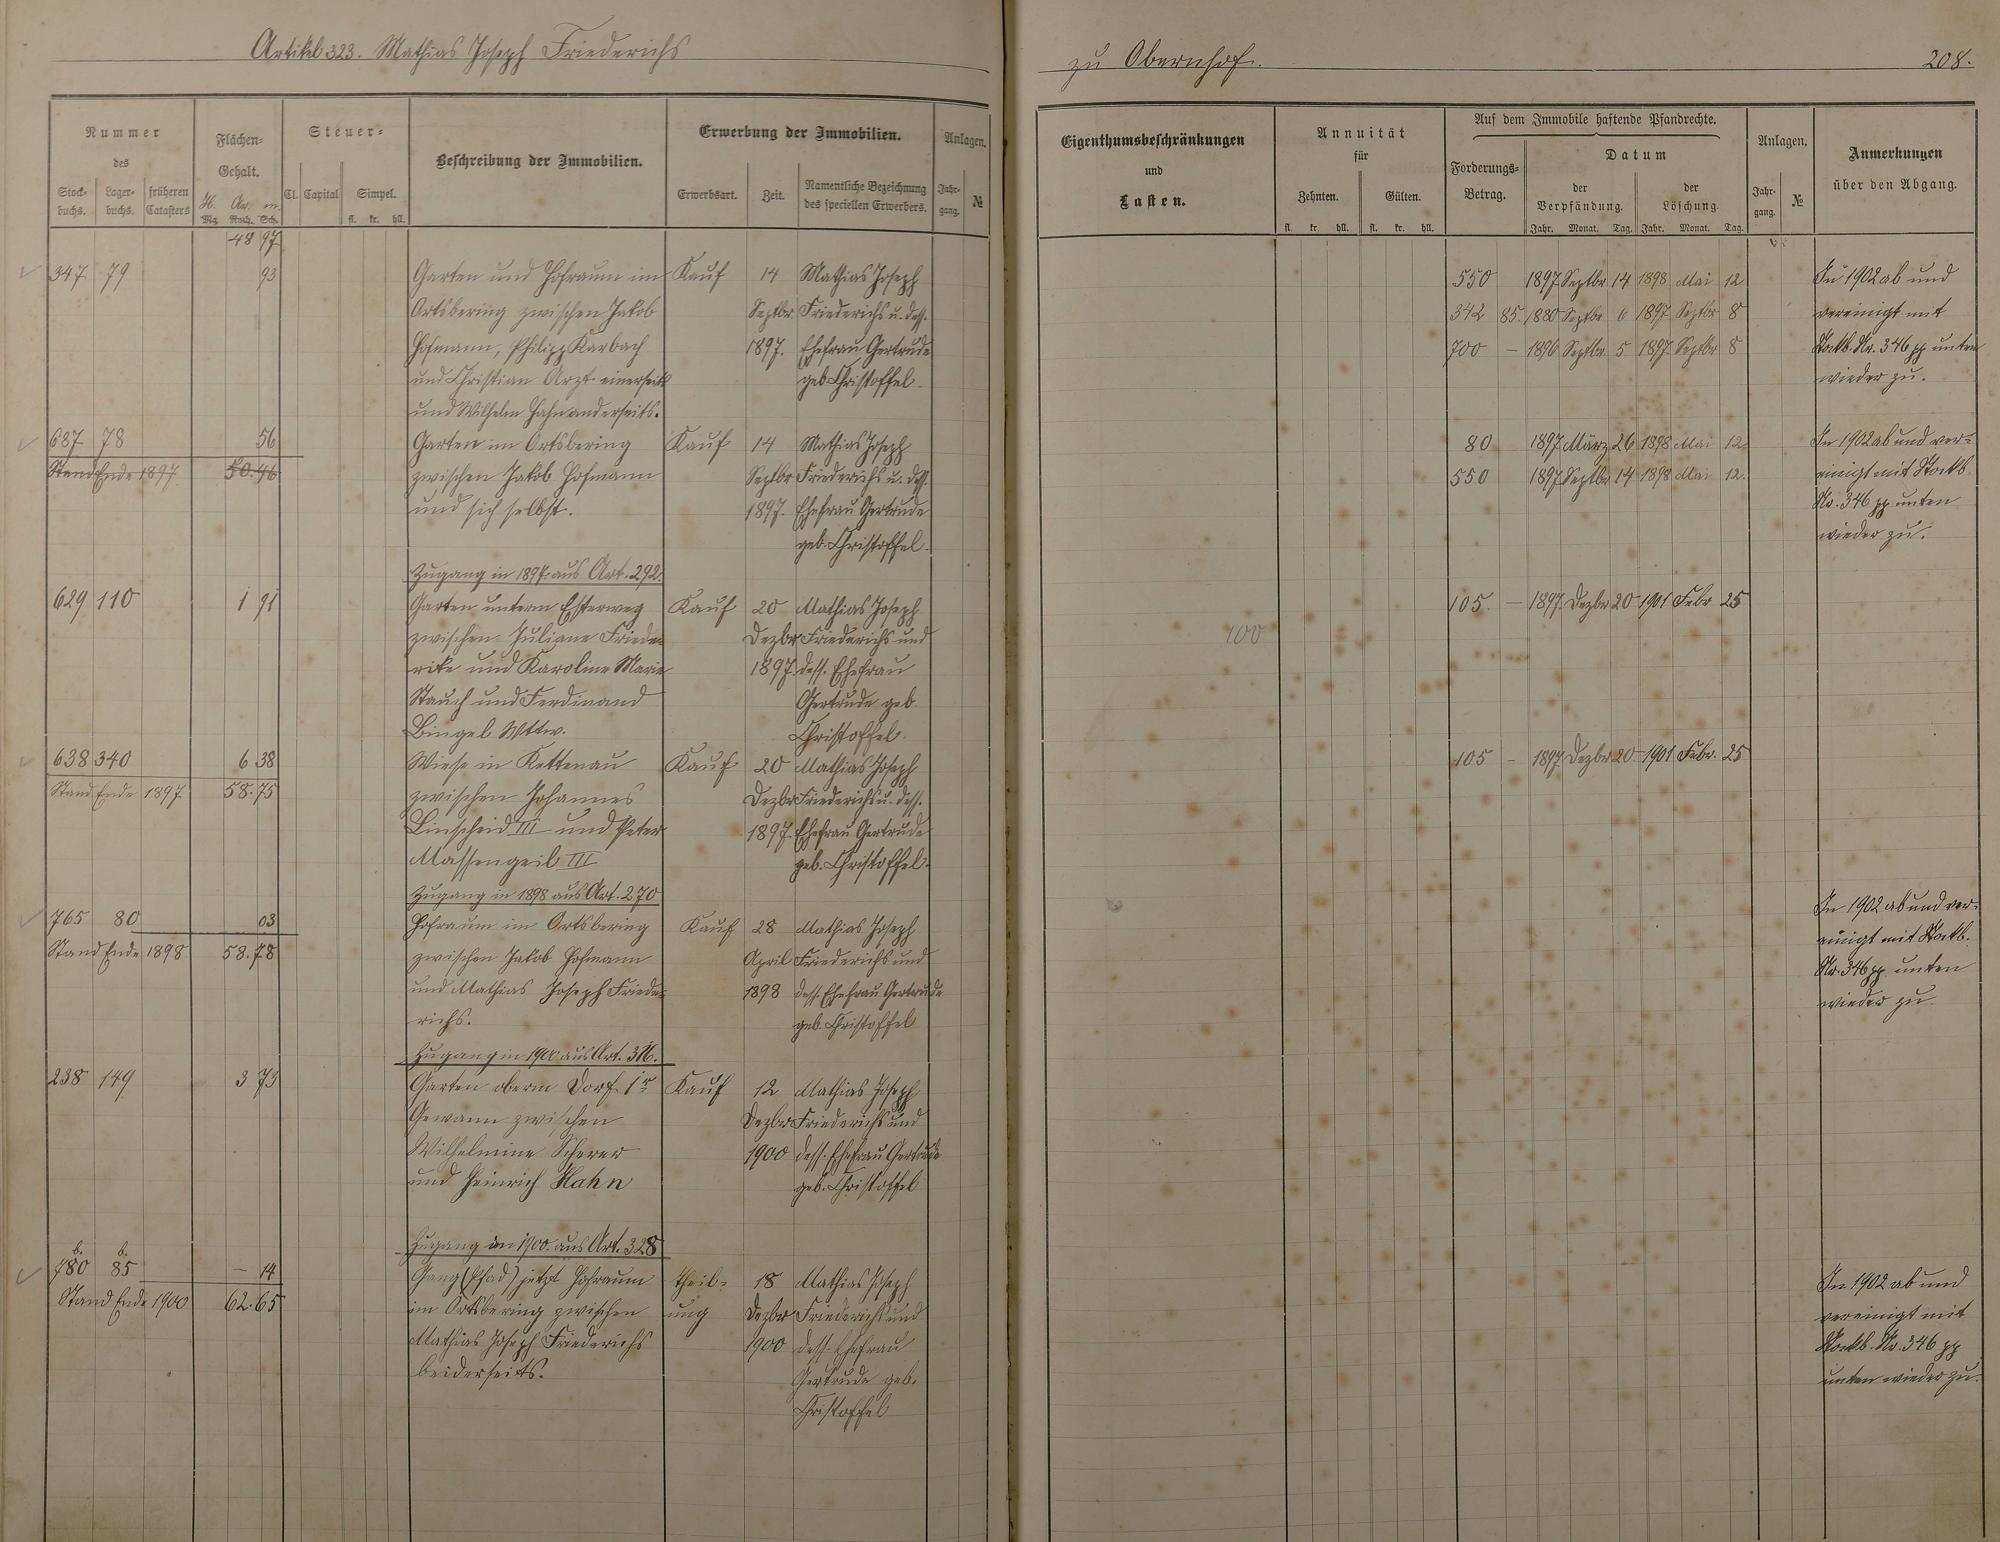 Artikel 323. Mathias Joseph Friederichs
zu Obernhof.
208.
Nummer
des
Stock-
buchs.
Lager-
buchs.
früheren
Catasters
Flächen-
Gehalt.
H. Ar. m
Mg. Ruth. Sch.
Steuer-
Cl. Capital Simpel.
fl. kr. hll.
Beschreibung der Immobilien.
Erwerbung der Immobilien.
Erwerbsart. Zeit. Namentliche Bezeichnung
des speciellen Erwerbers.
Anlagen.
Jahr-
gang.
№
Eigenthumsbeschränkungen
und
Lasten.
Annuität
für
Zehnten. Gülten.
fl. kr. hll. fl. kr. hll.
Auf dem Immobile haftende Pfandrechte.
Forderungs-
Betrag.
Datum
der
Verpfändung.
der
Löschung.
Jahr. Monat. Tag. Jahr. Monat. Tag.
Anlagen.
Jahr-
gang.
№
Anmerkungen
über den Abgang.
48 97
347 79 93 Garten und Hofraum im Kauf 14 Mathias Joseph
Ortsbering zwischen Jakob Septbr. Friederichs u. dess.
Hofmann, Philipp Karbach 1897. Ehefrau Gertrude
und Christian Arzt einerseits geb. Christoffel.
und Wilhelm Hahn anderseits.
550 1897 Septbr. 14 1898 Mai 12 In 1902 ab und
342 85. 1880 Septbr 6 1897 Septbr 8 vereinigt mit
700 — 1896 Septbr. 5 1897 Septbr 8 Stockb. Nr. 346 pp unten
wieder zu.
687 78 56 Garten im Ortsbering Kauf 14 Mathias Joseph
Stand Ende 1897 50.46 zwischen Jakob Hofmann Septbr Friederichs u. dess.
und sich selbst. 1897. Ehefrau Gertrude
geb. Christoffel.
80 1897 März 26 1898 Mai 12 In 1902 ab und ver-
550 1897 Septbr 14 1898 Mai 12. einigt mit Stockb.
Nr. 346 pp unten
wieder zu.
Zugang in 1897 aus Art. 292.
629 110 1 91 Garten unterm Esterweg Kauf 20 Mathias Joseph
zwischen Juliane Friede- Dezbr Friederichs und
rike und Karoline Marie 1897. dess. Ehefrau
Stauch und Ferdinand Gertrude geb.
Bingel Wttw. Christoffel.
105. — 1897 Dezbr 20 1901 Febr 25
100
638 340 6 38 Wiese in Kettenau Kauf 20 Mathias Joseph
Stand Ende 1897 58.75 zwischen Johannes Dezbr Friederichs u. dess.
Linscheid III und Peter 1897. Ehefrau Gertrude
Massengeil III geb. Christoffel.
105 — 1897 Dezbr 20 1901 Febr. 25
Zugang in 1898 aus Art. 270
765 80 03 Hofraum im Ortsbering Kauf 28 Mathias Joseph
Stand Ende 1898 58.78 zwischen Jakob Hofmann April Friederichs und
und Mathias Joseph Friede- 1898 dess. Ehefrau Gertrude
richs. geb. Christoffel
In 1902 ab und ver-
einigt mit Stockb.
Nr. 346 pp unten
wieder zu
Zugang in 1900 aus Art. 316.
238 149 3 73 Garten oberm Dorf 1r Kauf 12 Mathias Joseph
Gewann zwischen Dezbr Friederichs und
Wilhelmine Scherer 1900 dess. Ehefrau Gertrude
und Heinrich Hahn geb. Christoffel
Zugang in 1900. aus Art. 328
b. b.
780 85 — 14 Gang (Pfad) jetzt Hofraum Theil- 18 Mathias Joseph
Stand Ende 1900 62.65 im Ortsbering zwischen ung Dezbr Friederichs und
Mathias Joseph Friederichs 1900 dess. Ehefrau
beiderseits. Gertrude geb.
Christoffel
In 1902 ab und
vereinigt mit
Stockb. Nr. 346 pp
unten wieder zu.